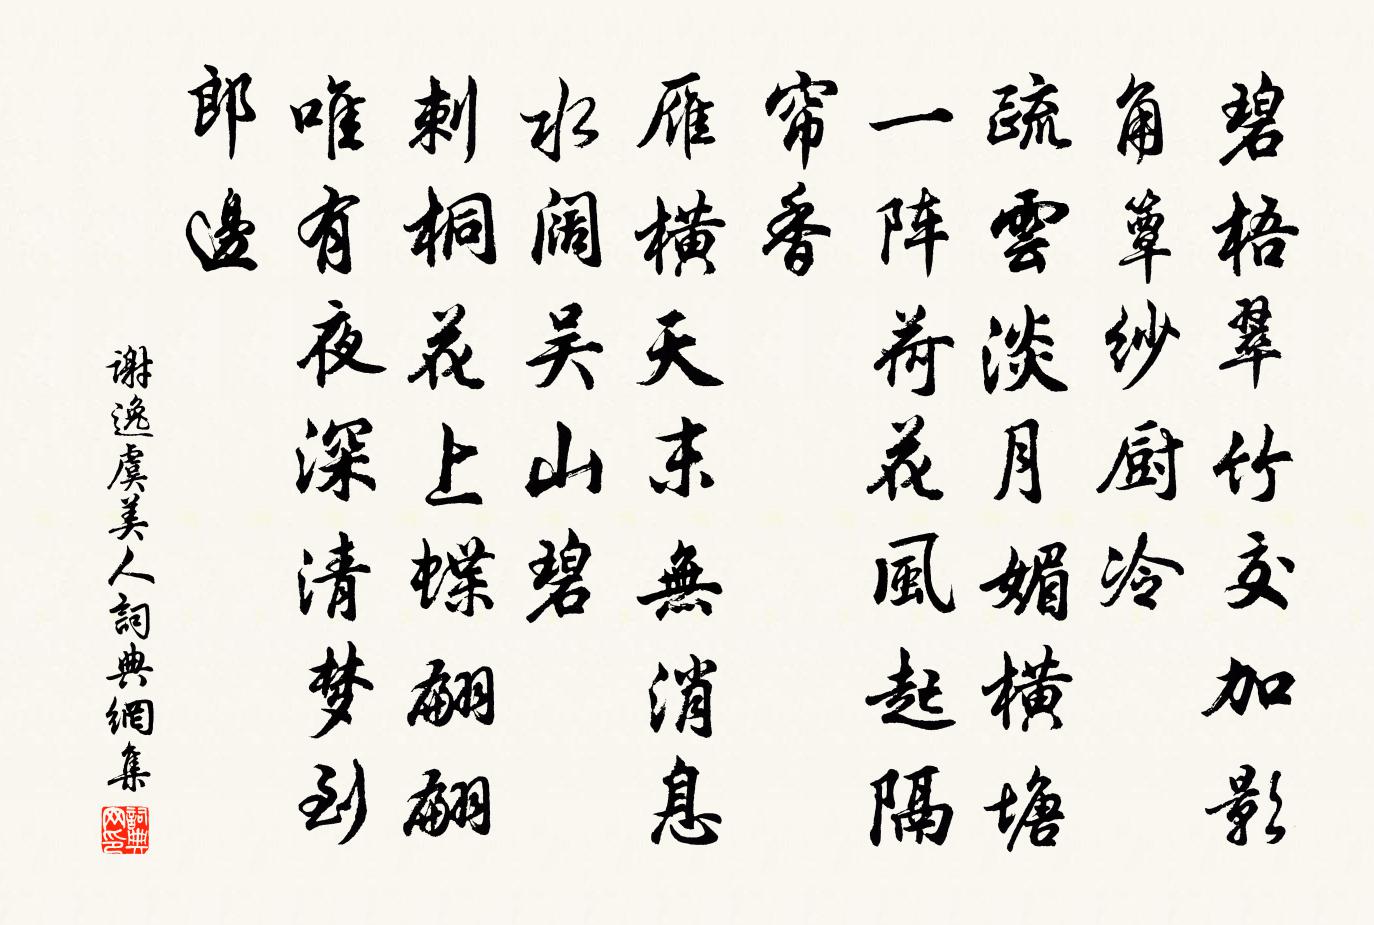 碧梧翠竹交加影
角簟纱厨冷
疏雲淡月媚横塘
一阵荷花風起隔
帘香
雁横天末無消息
水阔吴山碧
刺桐花上蝶翩翩
唯有夜深清梦到
郎邊
谢逸虞美人詞典網集
詞典网印